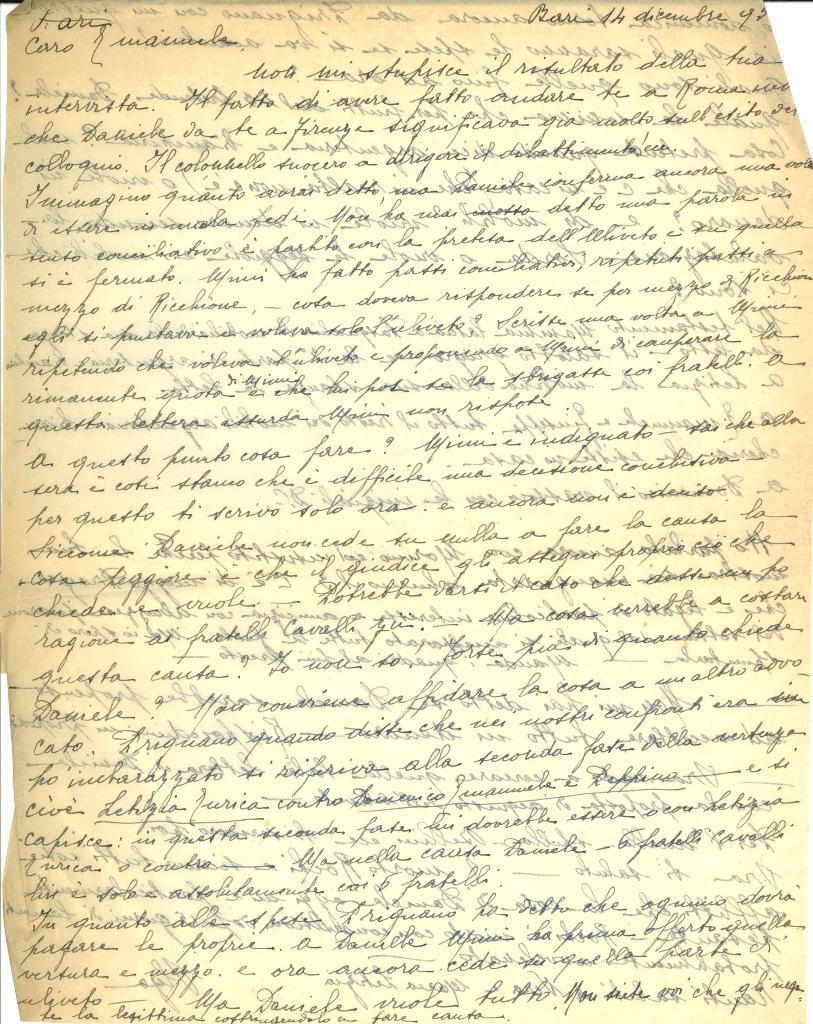 Bari 14 dicembre 93
Bari
Caro Emanuele,
non mi stupisce il risultato della tua
intervista. Il fatto di avere fatto andare te a Roma
che Daniele da te a Firenze significava già molto sull'esito del
colloquio. Il colonnello suocero a dirigere il dibattimento ecc.
Immagino quanto avrai detto, ma Daniele conferma ancora una volta
di essere in mala fede. Non ha mai mosso detto una parola in
senso conciliativo: è partito con la pretesa dell'Uliveto e su quella
si è fermato. Mimì ha fatto passi conciliativi, ripetuti passi a
mezzo di Ricchione, — cosa doveva rispondere se per mezzo di Ricchione
egli si puntava e voleva solo l'uliveto? Scrisse una volta a Mimì
ripetendo che voleva l'uliveto e proponendo a Mimì di comperare la
rimanente quota di Mimì e che lui poi se la sbrigasse coi fratelli. A
questa lettera assurda Mimì non rispose.
A questo punto cosa fare? Mimì è indignato — sai che alla
sera è così stanco che è difficile una decisione conclusiva —
per questo ti scrivo solo ora: e ancora non è deciso
Siccome Daniele non cede su nulla a fare la causa la
cosa peggiore è che il giudice gli assegni proprio ciò che
chiede e vuole — Potrebbe darsi il caso che desse un po'
ragione ai fratelli Cavalli — Ma cosa verrebbe a costare
questa causa? Io non so. Forse più di quanto chiede
Daniele? Non conviene affidare la cosa a un altro avvo
cato. Drignano quando disse che nei nostri confronti era un
po' imbarazzato si riferiva alla seconda fase della vertenza
cioè Letizia Enrica contro Domenico Emanuele e Peppino — e si
capisce: in questa seconda fase lui dovrebbe essere o con Letizia
Enrica o contro — Ma nella causa Daniele - 6 fratelli Cavalli
lui è solo e assolutamente coi 6 fratelli.
In quanto alle spese Drignano ha detto che ognuno dovrà
pagare le proprie. A Daniele Mimì ha prima offerto quella
versura e mezzo. e ora ancora cede su quella parte di
uliveto — Ma Daniele vuole tutto. Non siete voi che gli nega
te la legittima costringendolo a fare causa.